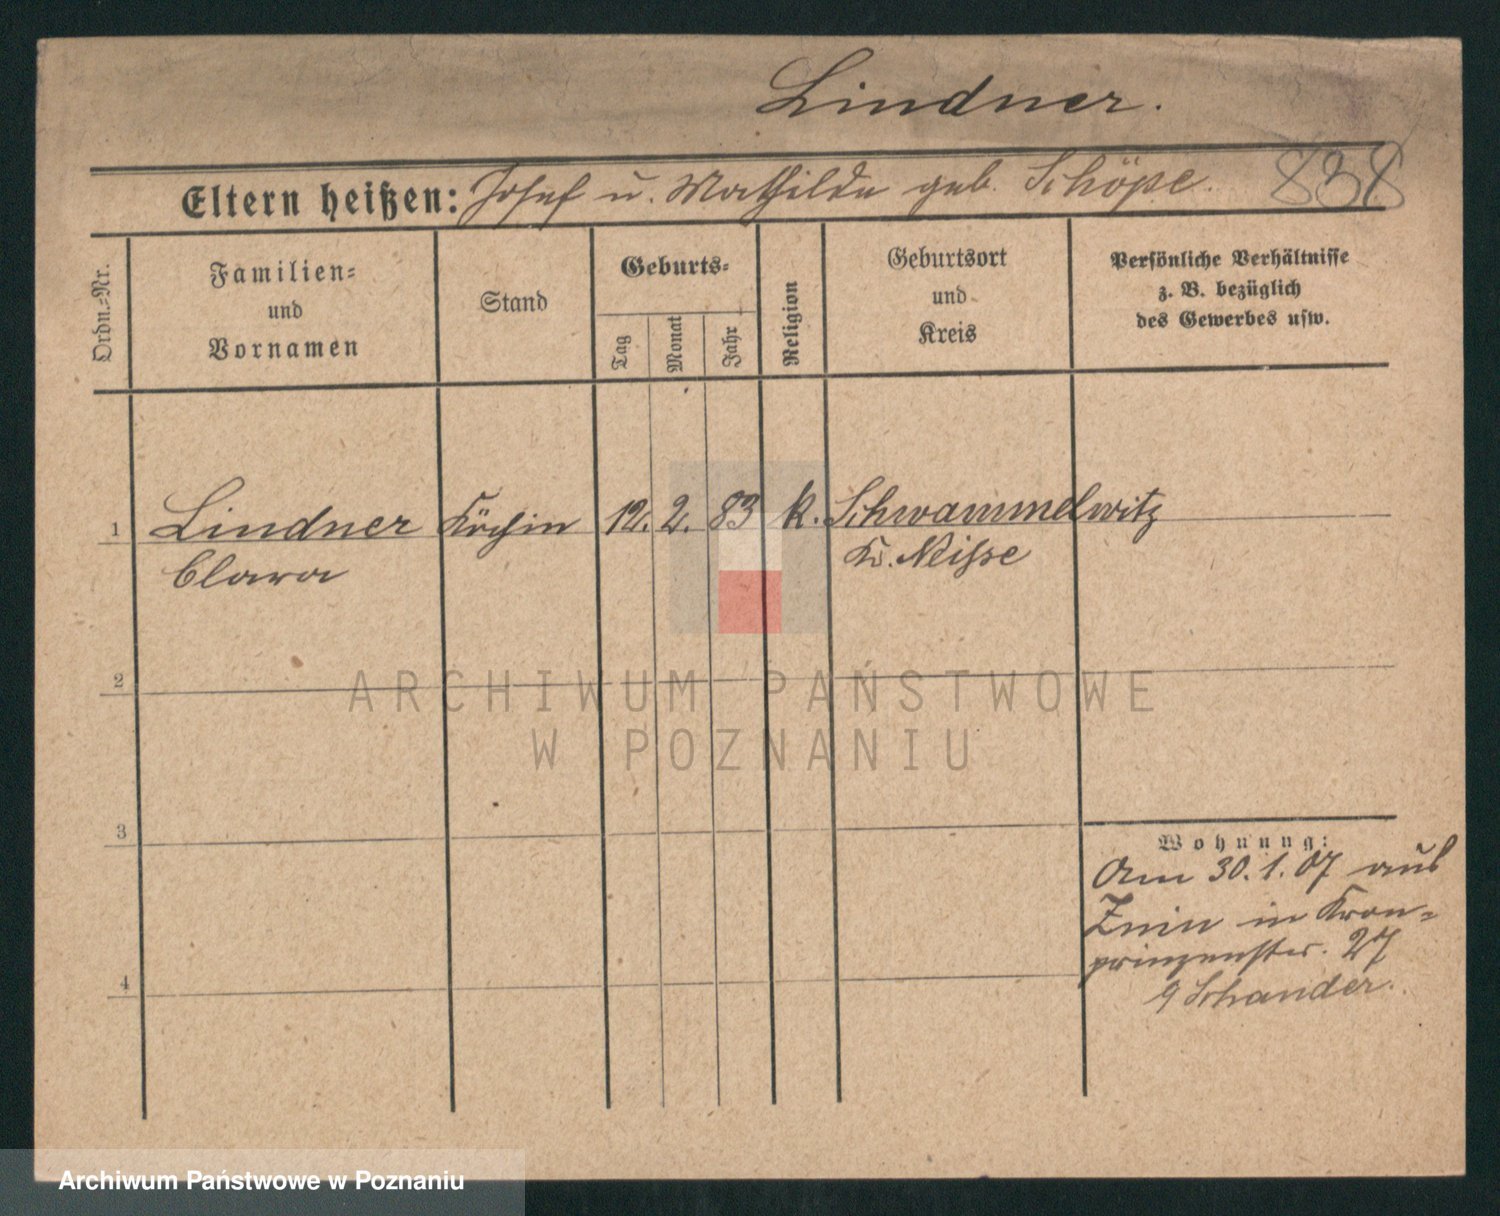 Lindner.
838
Eltern heißen: Josef u. Mathilde geb. Schöpe.
Ordn.-Nr.
Familien-
und
Vornamen
Stand
Geburts-
Tag
Monat
Jahr
Religion
Geburtsort
und
Kreis
Persönliche Verhältnisse
z. B. bezüglich
des Gewerbes usw.
1 Lindner Köchin 12. 2. 83 k. Schwammelwitz
Clara Kr. Neisse
2
ARCHIWUM PAŃSTWOWE
W POZNANIU
3
Wohnung:
Am 30.1.07 aus
Znin in Kron-
prinzenstr. 27
4
Schander.
Archiwum Państwowe w Poznaniu